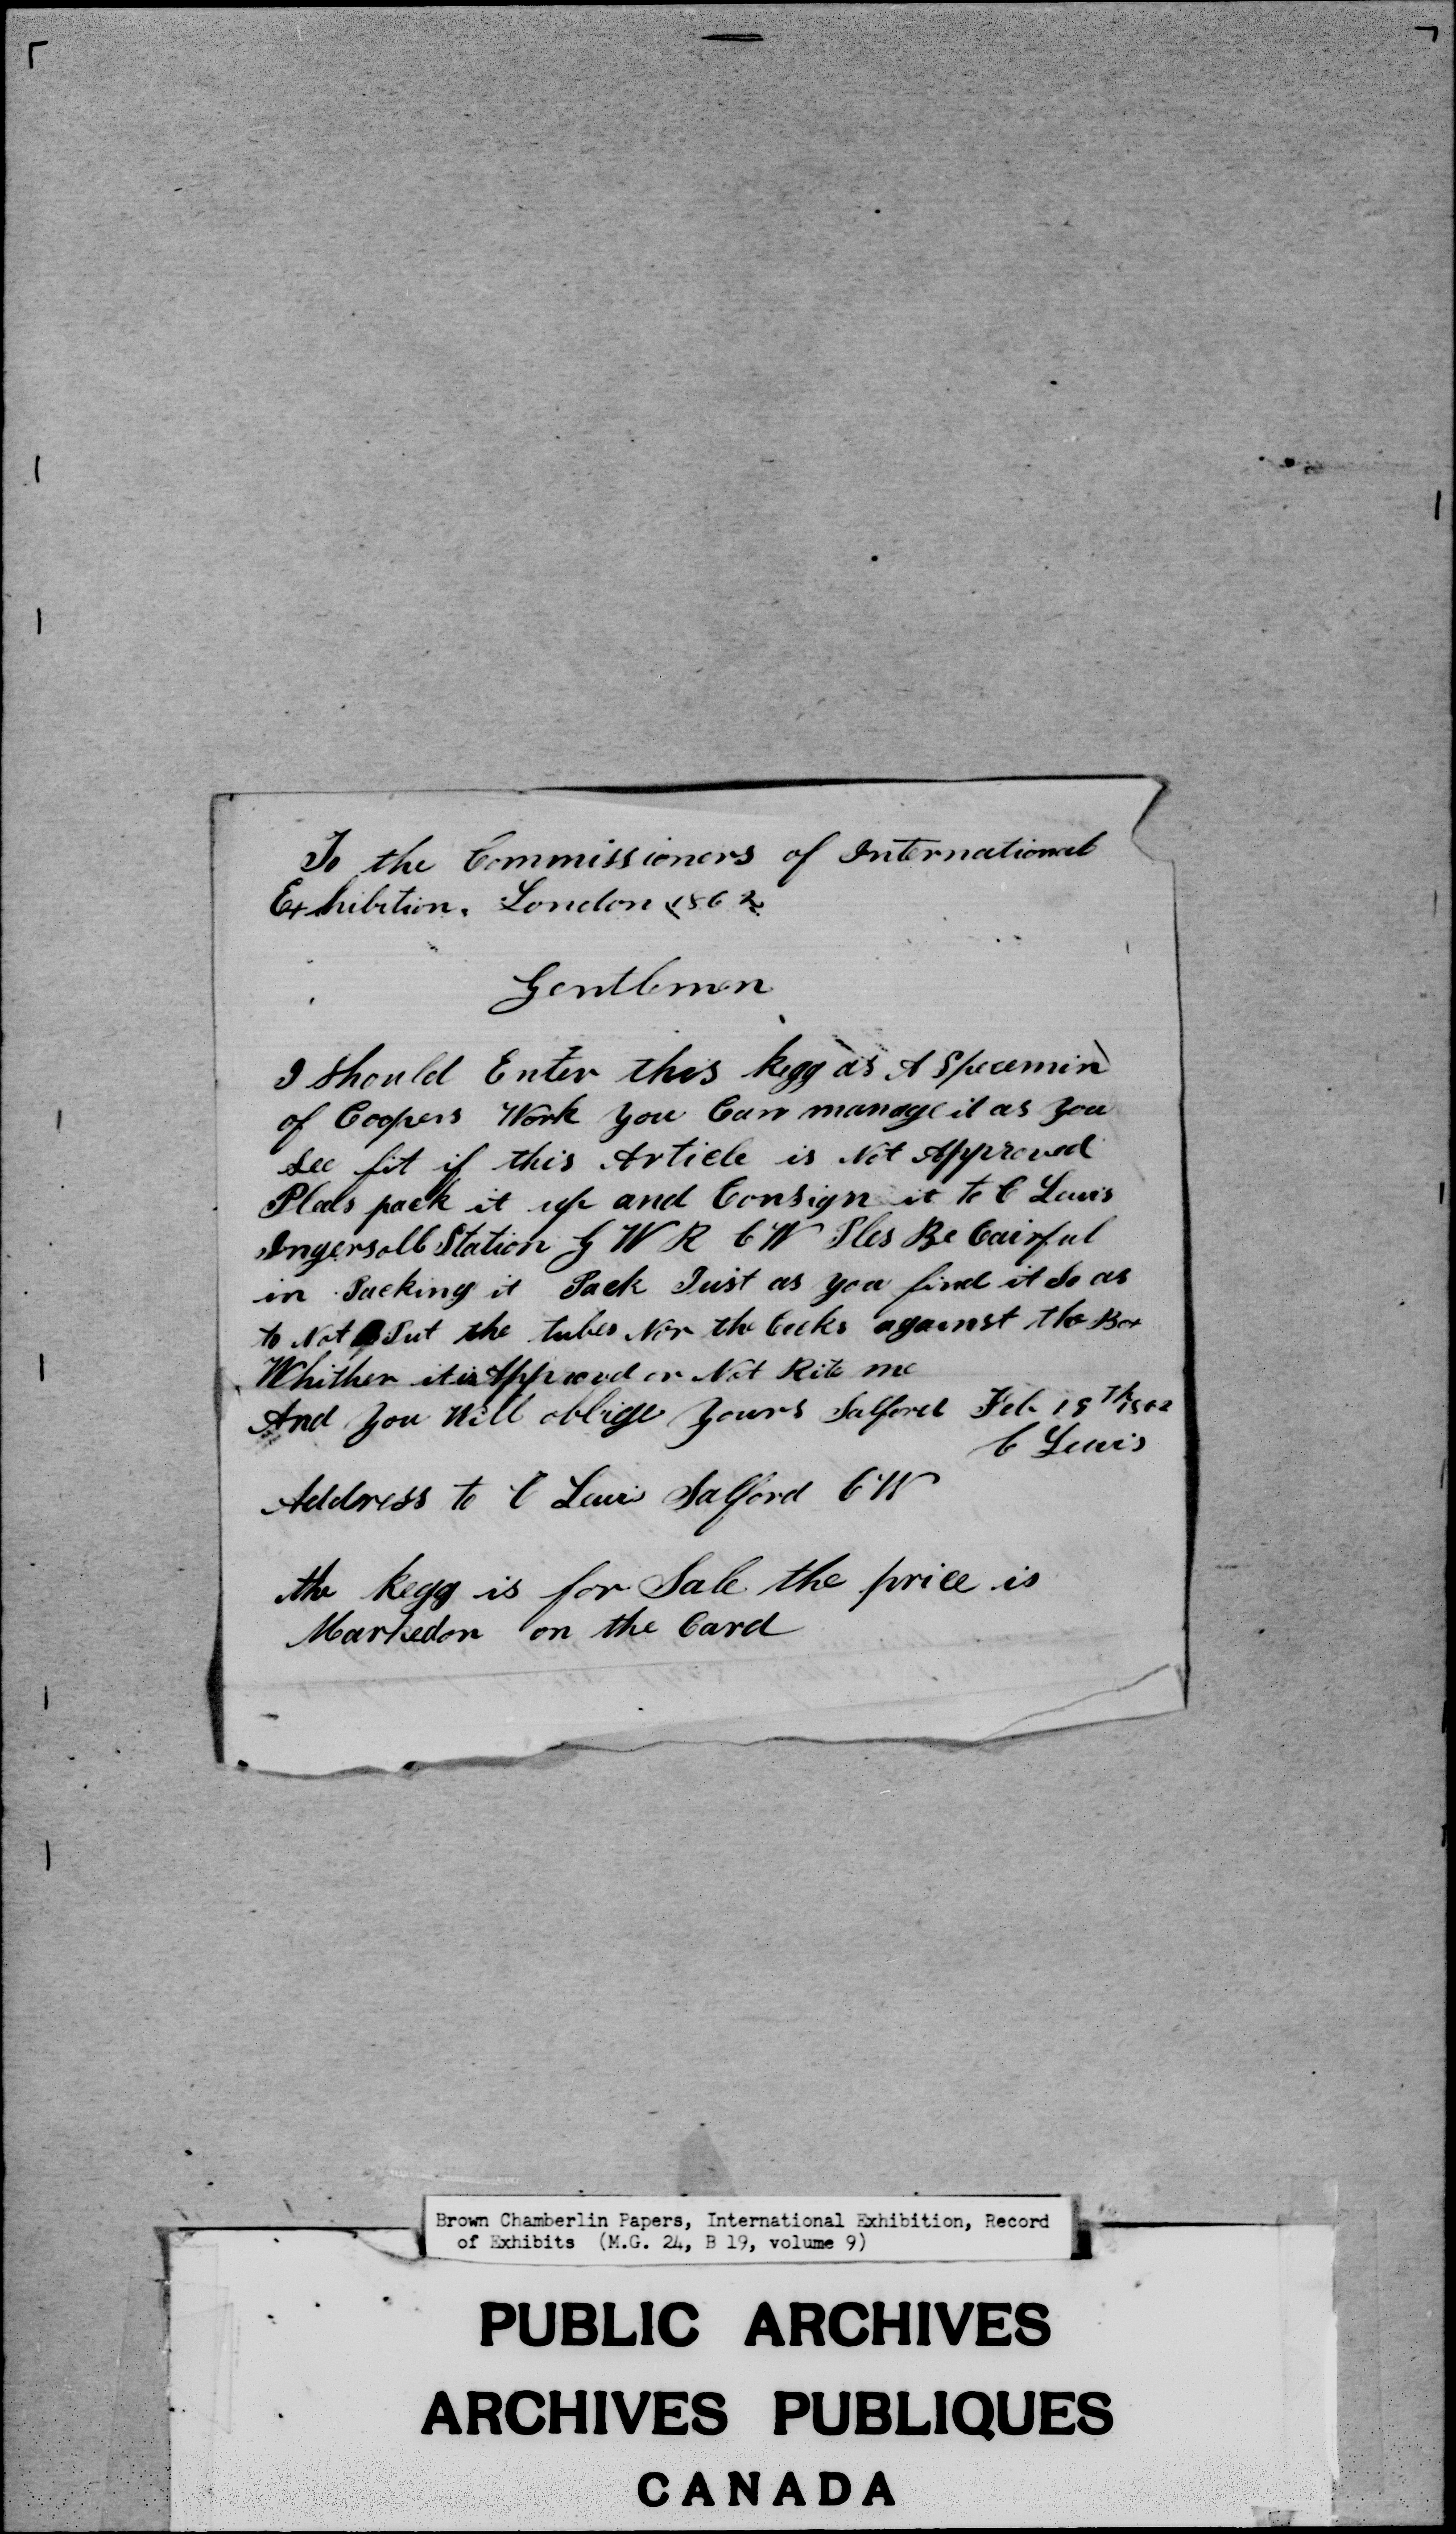 To the Commissioners of International
Exhibition. London 1862
Gentlemen
I Should Enter this kegg as A Specemin
of Coopers Work you Can manage it as you
See fit if this Article is Not Approved
Pleas pack it up and Consign it to C Lewis
Ingersoll Station G W R C W Ples Be Cairful
in Packing it Pack Just as you find it So as
to Not Put the tubes Nor the Cocks against the Box
Whither it is Approved or Not Rite me
And you Will obblige yours Salford Feb 19th 1862
C Lewis
Address to C Lewis Salford C W
the kegg is for Sale the price is
Markedon on the Card
Brown Chamberlin Papers, International Exhibition, Record
of Exhibits (M.G. 24, B 19, volume 9)
PUBLIC ARCHIVES
ARCHIVES PUBLIQUES
CANADA